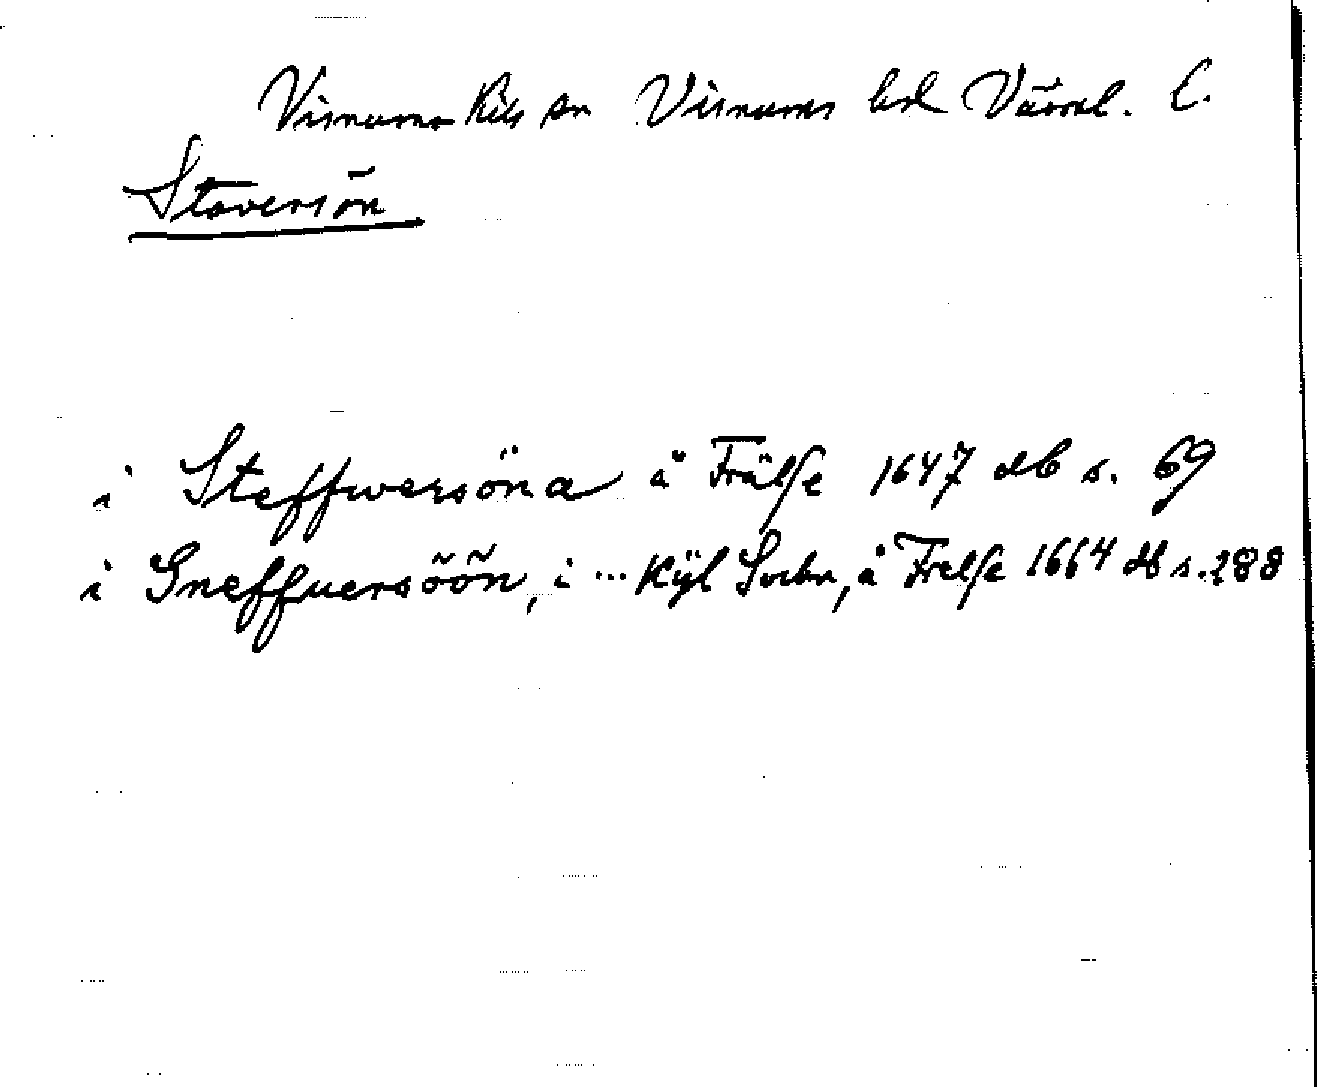 Visnums Kils sn Visnums hd Värml. l.
Staversön
i Steffwersöna å Frälse 1647 db s. 69
i Sneffuersöön, i ... Kijl Sochn, å Frelse 1664 db s. 288